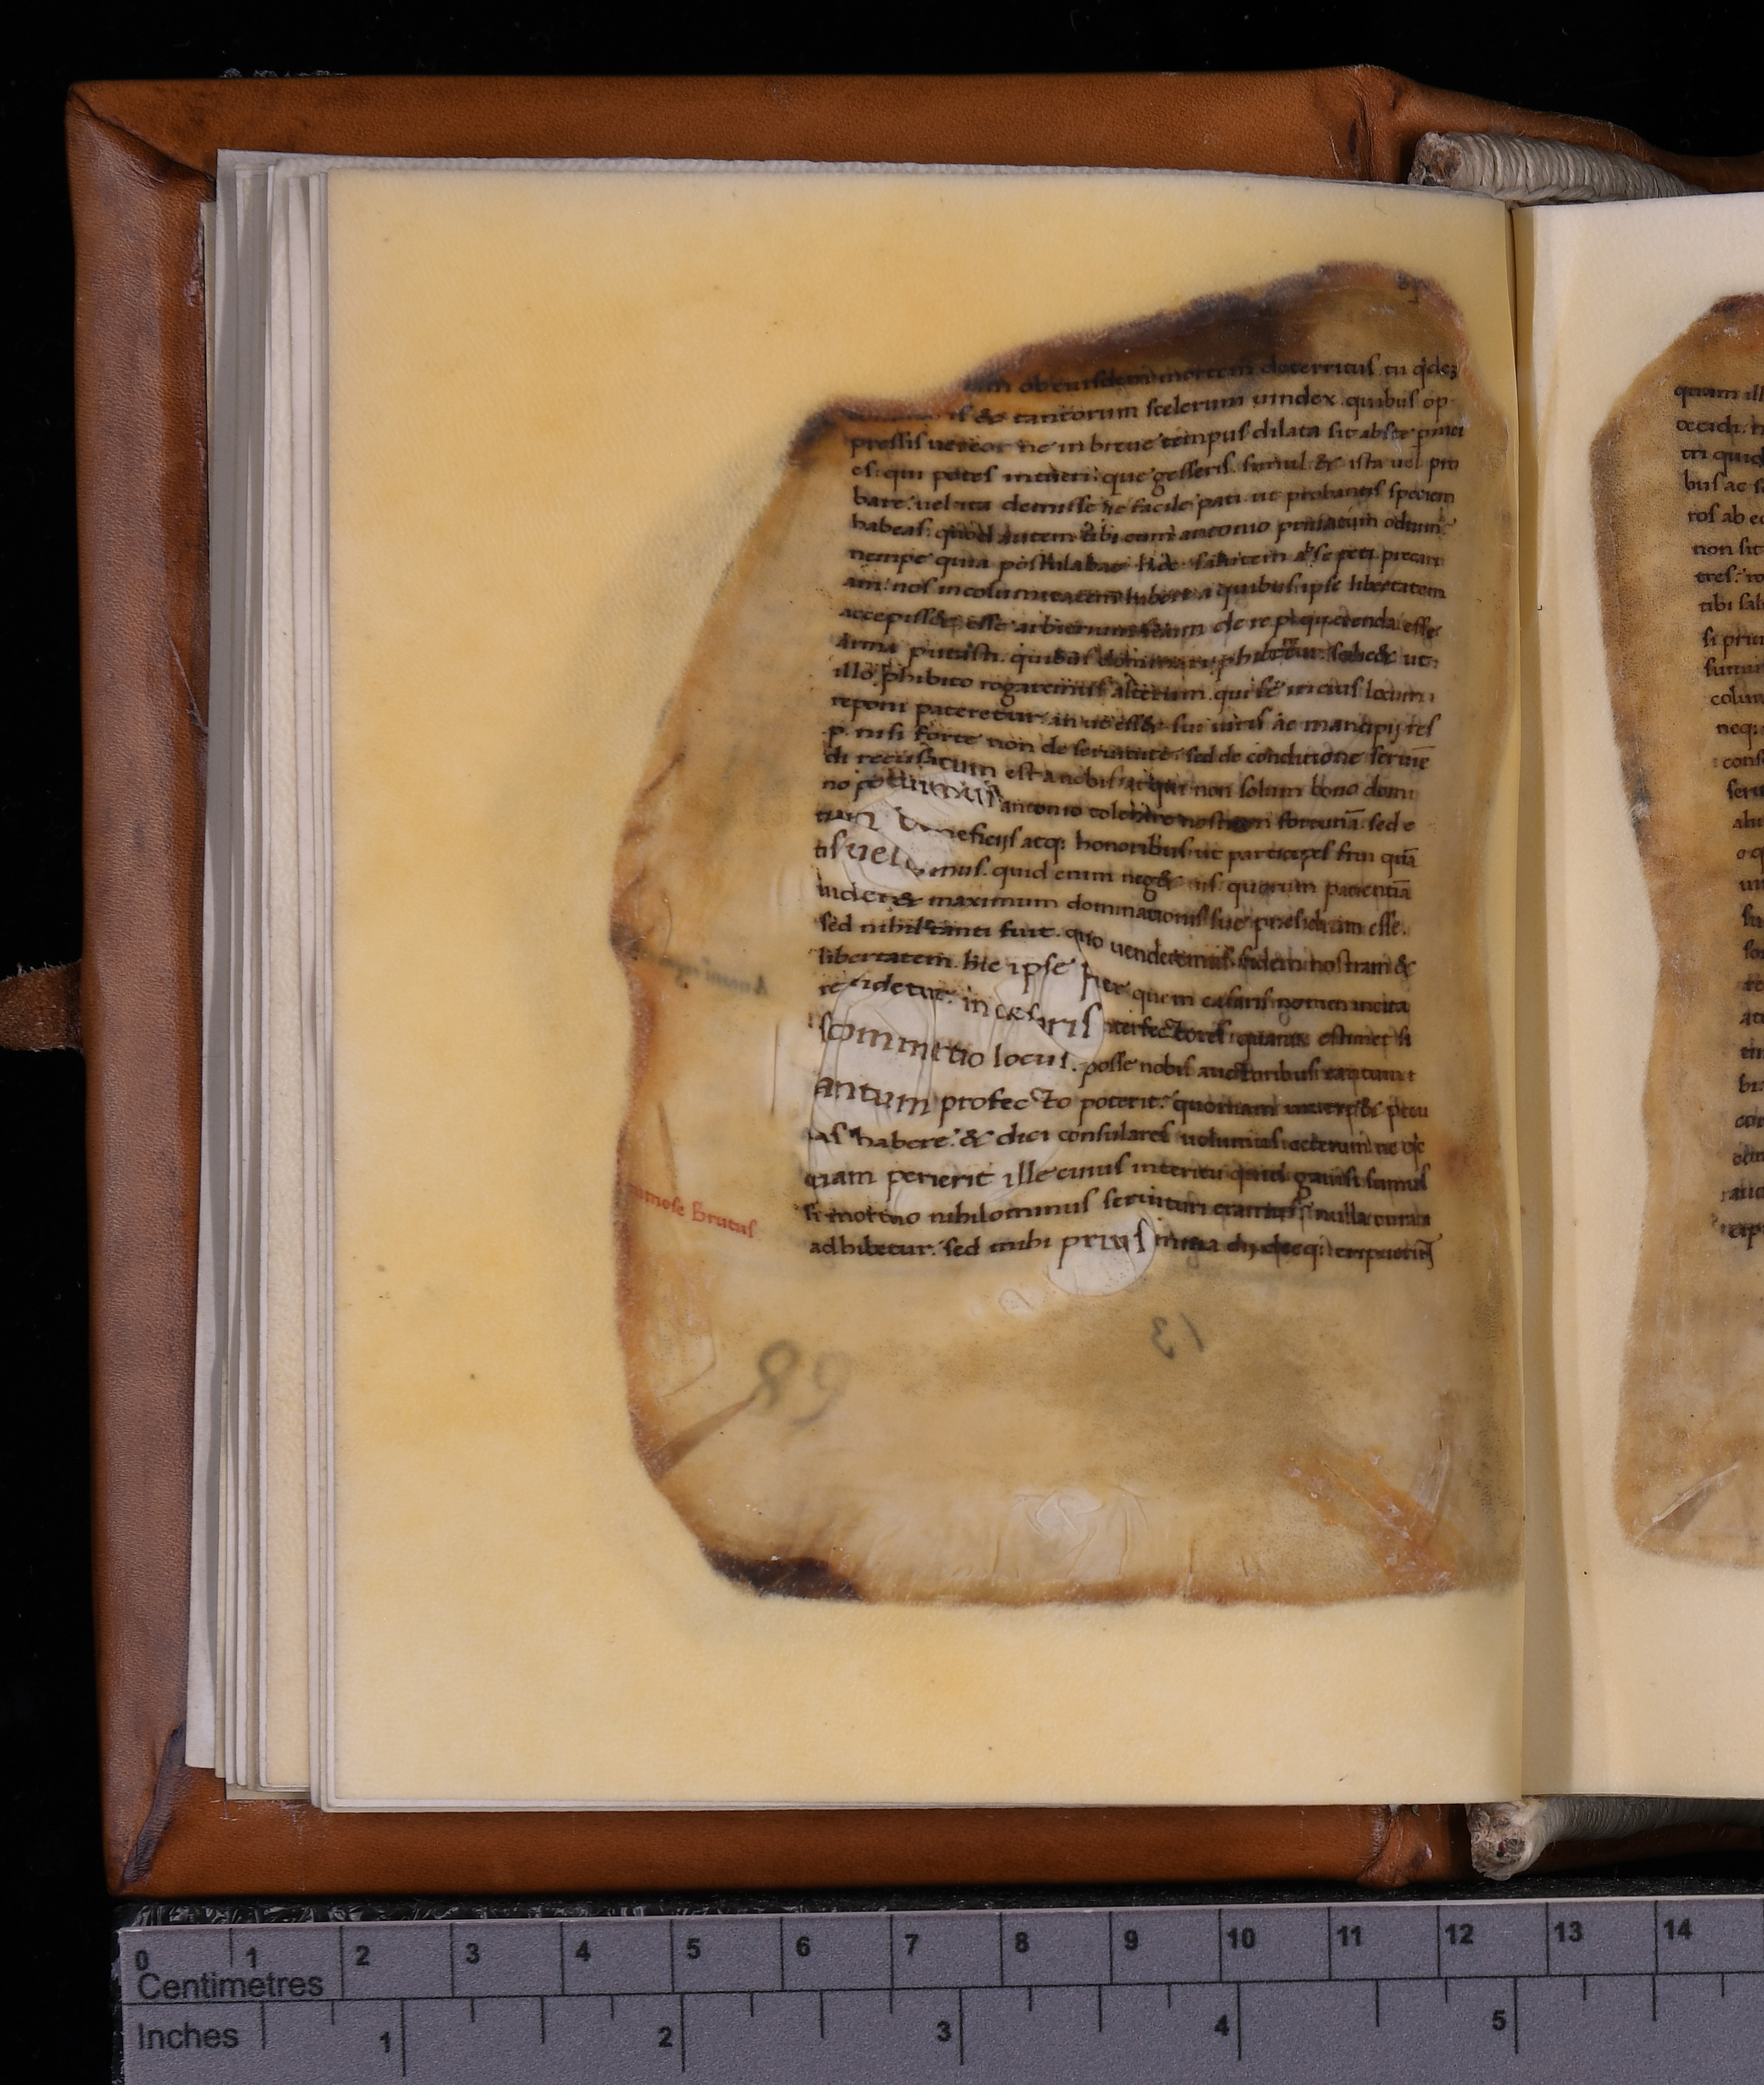 ob eiusdem mortem deterritus tu qdeʒ
is & tantorum scelerum uindex quibus op
pressis uereor ne in breue tempus dilata sit abs te
es: qui potes intueri: que gesseris. simul & ista uel pro
bare: uel ita demisse ac facile pati ut probantis speciem
habeas: quod autem tibi cum antonio priuatum odium
nempe quia postulabat hec salutem abse peti precari
am: nos incolumitatem habere a quibus ipse libertatem
accepiss& esse arbitrium suum de re p
Arma putasti. quibus dominari phiberetur ut
illo phibito rogaremus alterum qui se in eius locum
reponi pateretur: an ut ess& sui iuris ac mancipij res
p. nisi forte non de seruitute: sed de conditione seruiē
di recusatum est a nobis: atqui non solum bono domi
no potuimus antonio tolerare nostram fortunā sed e
tiam beneficijs atq: honoribus ut participes frui quā
tis uellemus. quid enim neg& iis quorum patientiā
uider& maximum dominationis sue presidium esse.
sed nihil tanti fuit. quo uenderemus fidem nostram &
libertatem. hic ipse puer quem cesaris nomen incita
re uidetur in cesaris interfectores quanti estimet si
sit commertio locus. posse nobis auctoribus tantum
antum profecto poterit: quoniam uiuere & pecu
ias habere: & dici consulares uolumus ceterum ne
quam perierit ille cuius interitu quid gauisi sumus
si mortuo nihilominus seruituri eramus: nulla cura
adhibetur: sed mihi prius omnia dij deeq: eripuerīt
mose Brutus
98
13